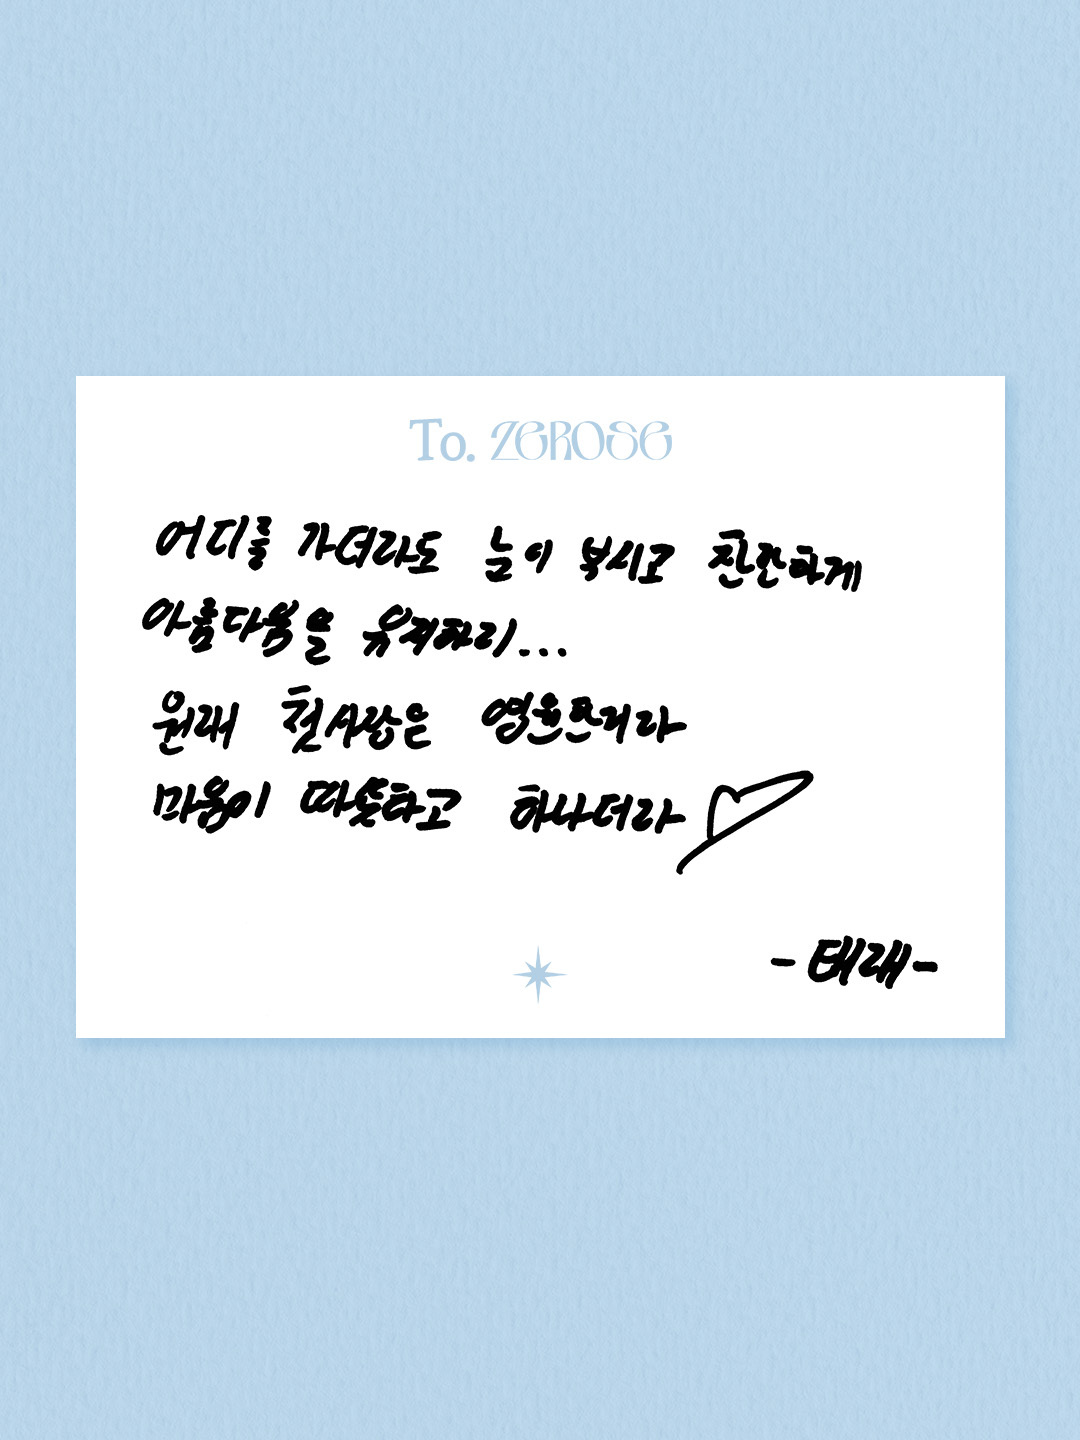 To. ZEROSE
어디를 가더라도 눈이 부시고 찬란하게
아름다움을 유지하리...
원래 첫사랑은 영원하리라
마음이 따뜻하고 하나더라
-태래-